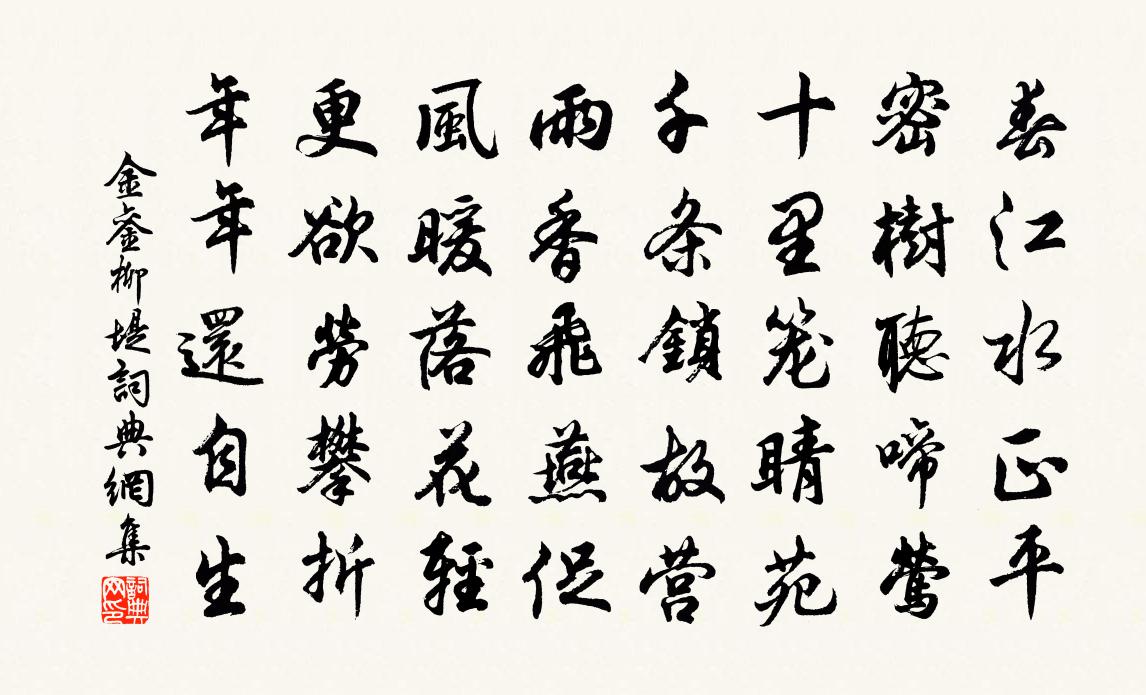 春江水正平
密樹聽啼鶯
十里笼晴苑
千条鎖故营
雨香飛燕促
風暖落花輕
更欲勞攀折
年年還自生
金銮柳堤詞典網集
詞典網印